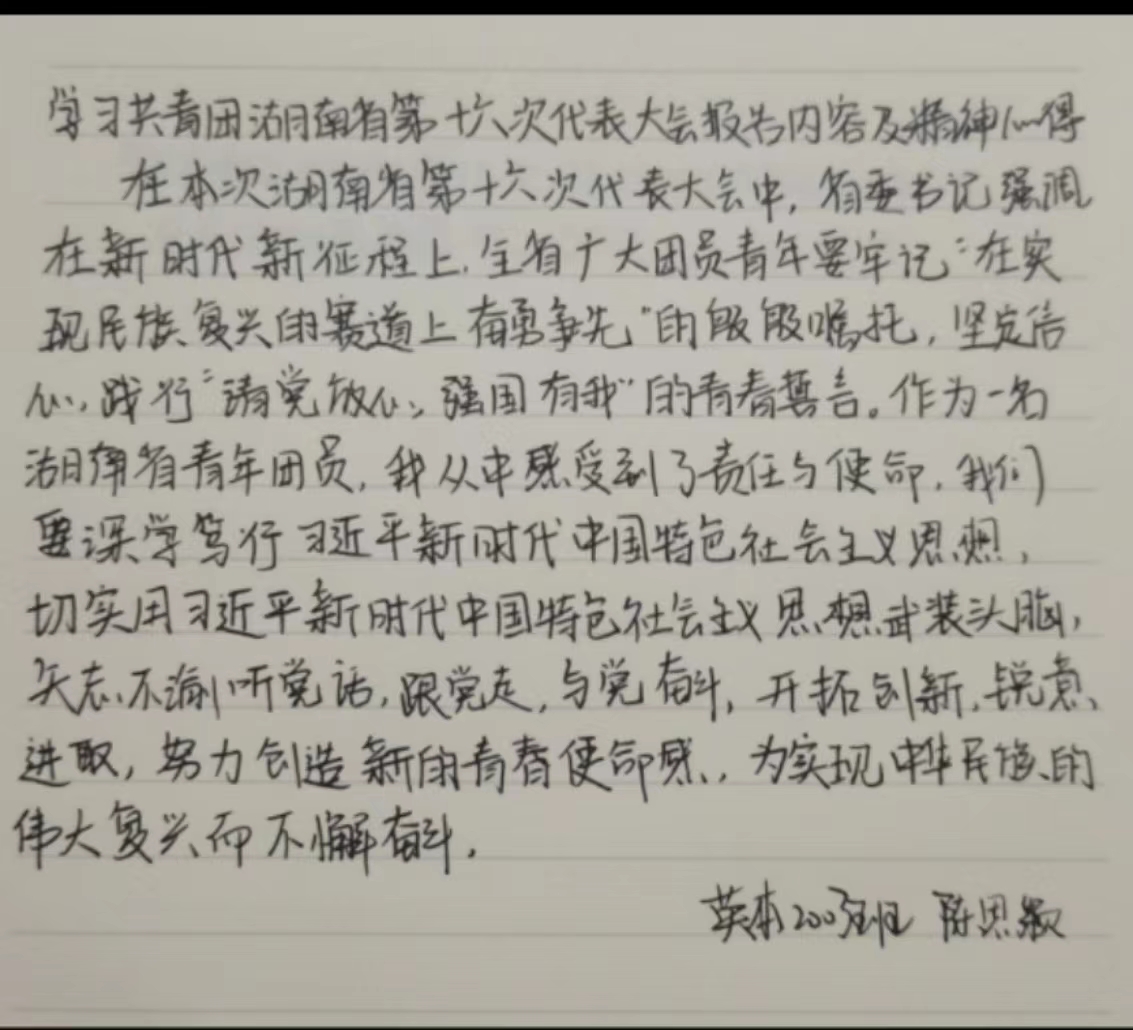 学习共青团湖南省第十六次代表大会报告内容及精神心得
在本次湖南省第十六次代表大会中,省委书记强调
在新时代新征程上,全省广大团员青年要牢记“在实
现民族复兴的赛道上奋勇争先”的殷殷嘱托,坚定信
心,践行“请党放心,强国有我”的青春誓言。作为一名
湖南省青年团员,我从中感受到了责任与使命,我们
要深学笃行习近平新时代中国特色社会主义思想,
切实用习近平新时代中国特色社会主义思想武装头脑,
矢志不渝听党话,跟党走,与党奋斗,开拓创新,锐意
进取,努力创造新的青春使命感,为实现中华民族的
伟大复兴而不懈奋斗.
英本2003班 陈思